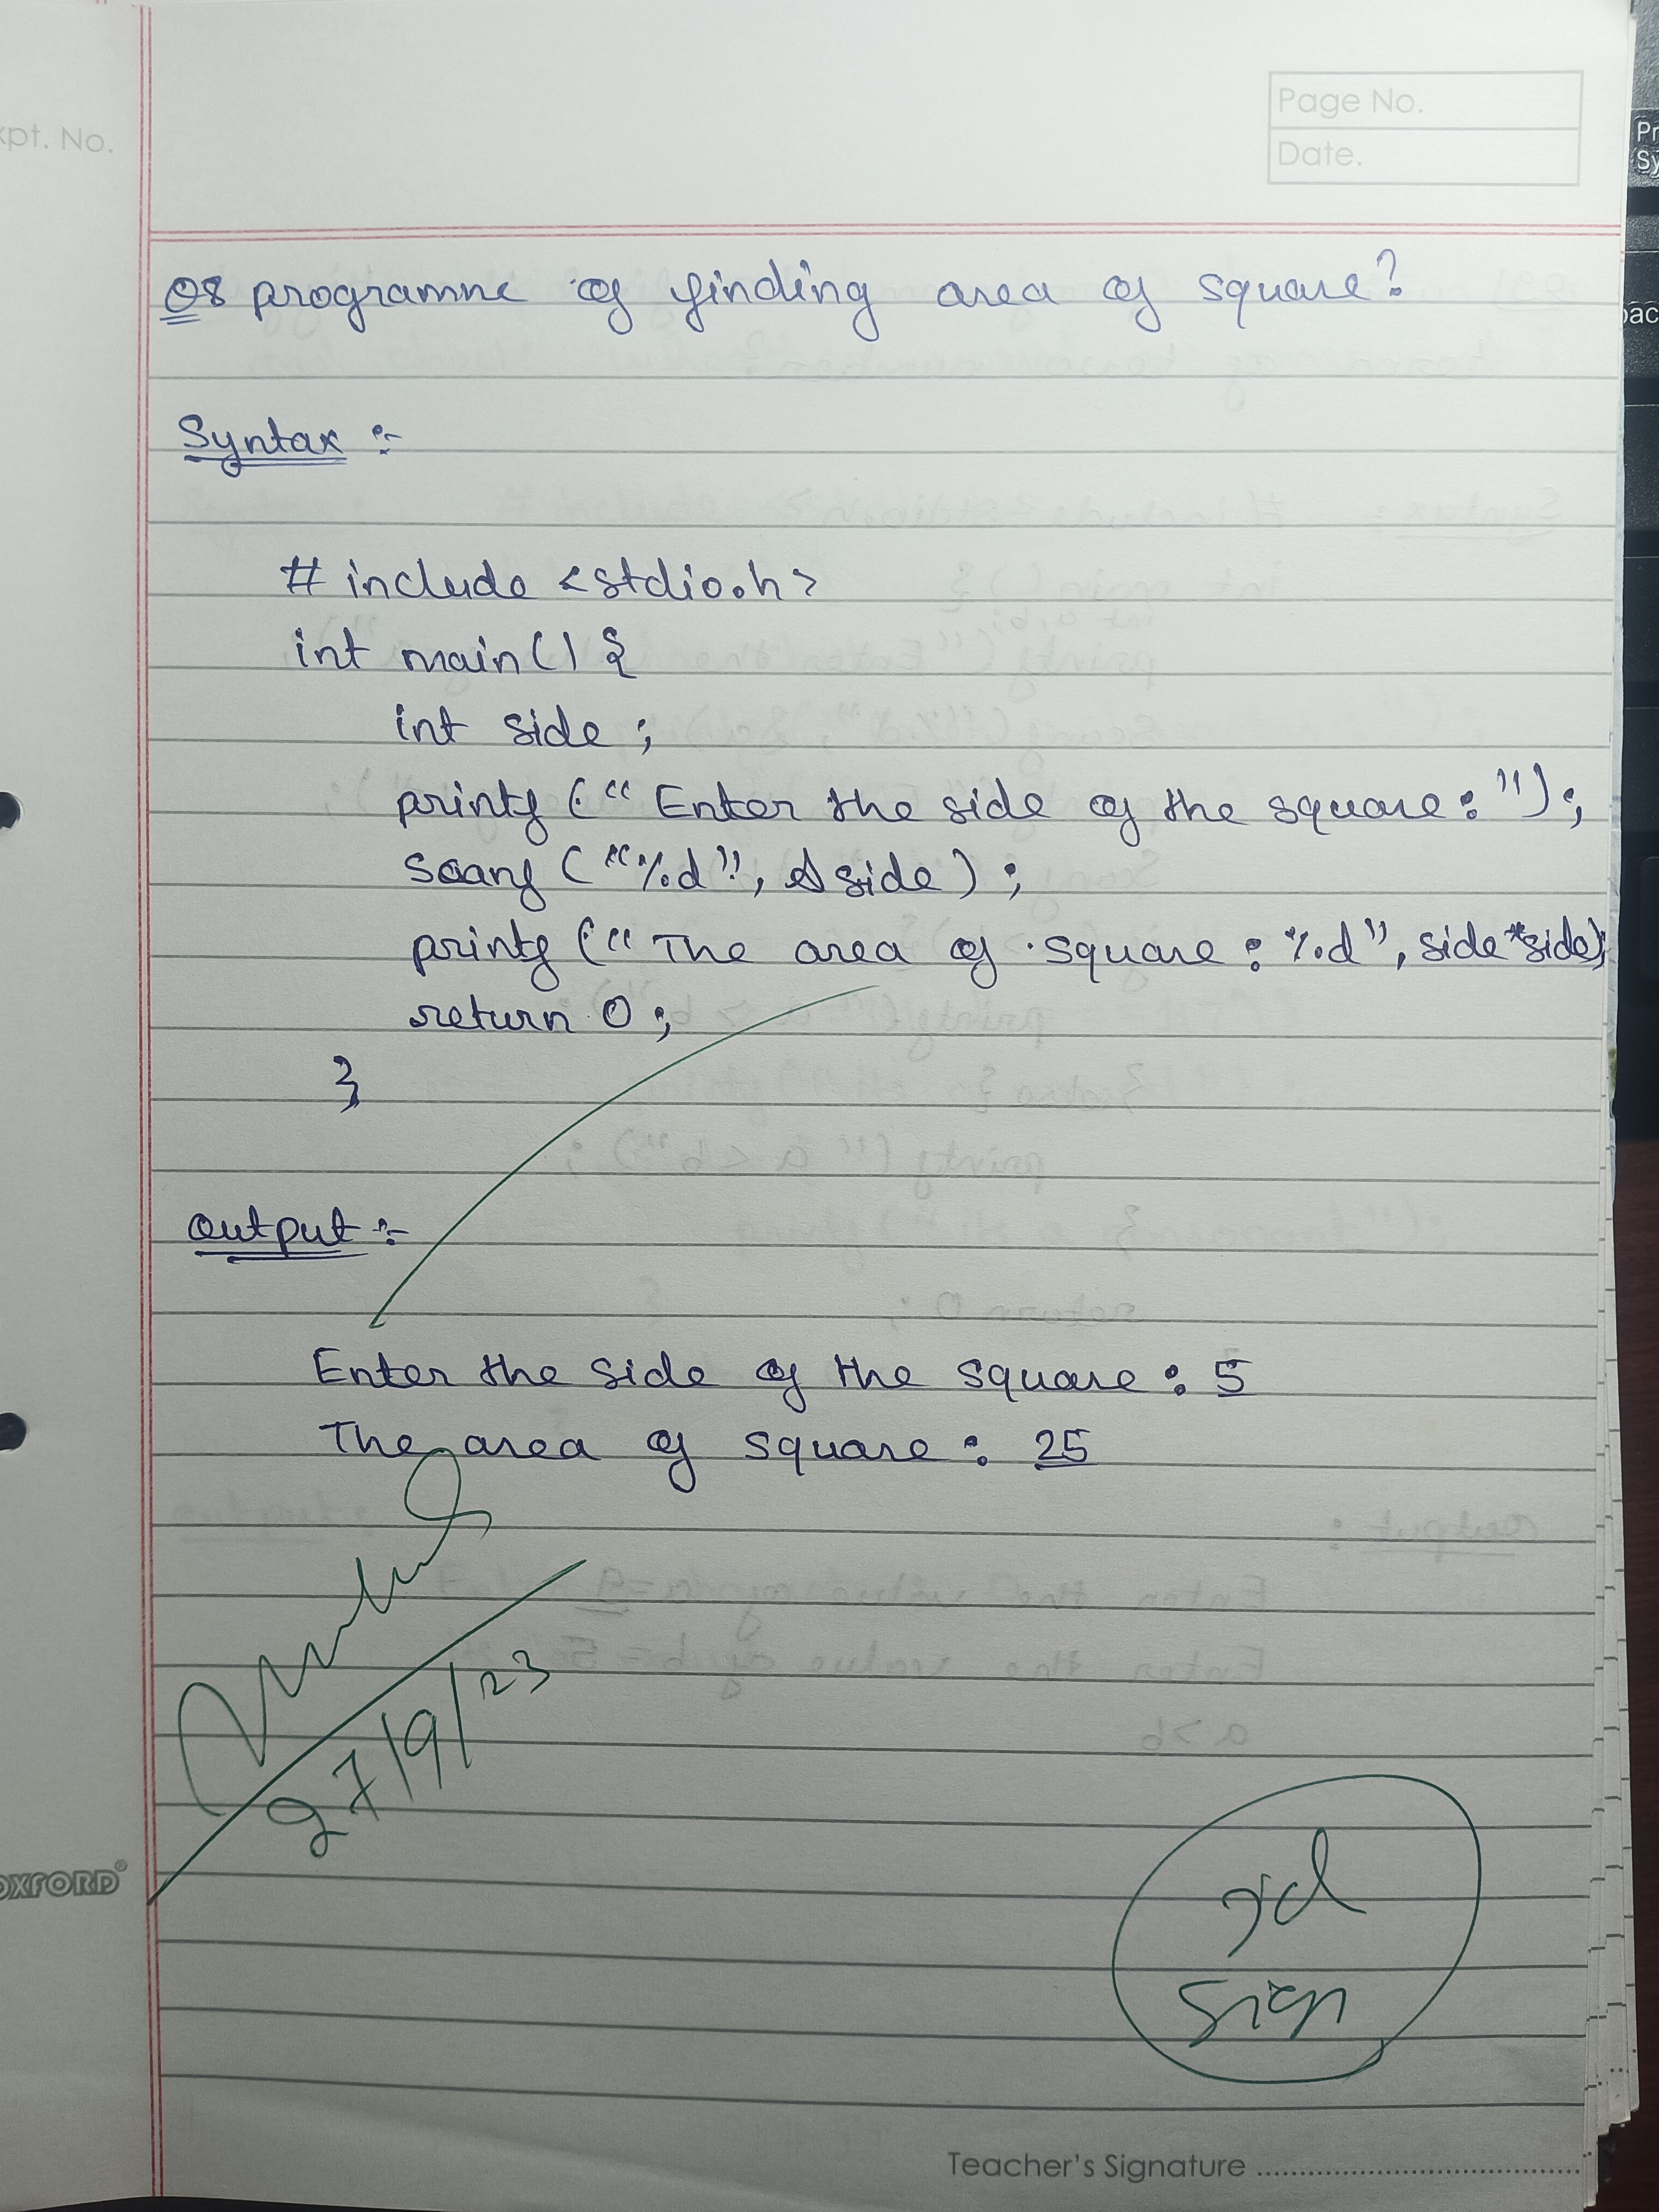 xpt. No.
Page No.
Date.
Q8 programme of finding area of square?
Syntax :-
# include <stdio.h>
int main () {
int side ;
printf (" Enter the side of the square : ") ;
scanf ("%d", &side) ;
printf (" The area of square : %d", side*side);
return 0 ;
}
Output :-
Enter the side of the square : 5
The area of square : 25
27/9/23
Sign
OXFORD®
Teacher's Signature